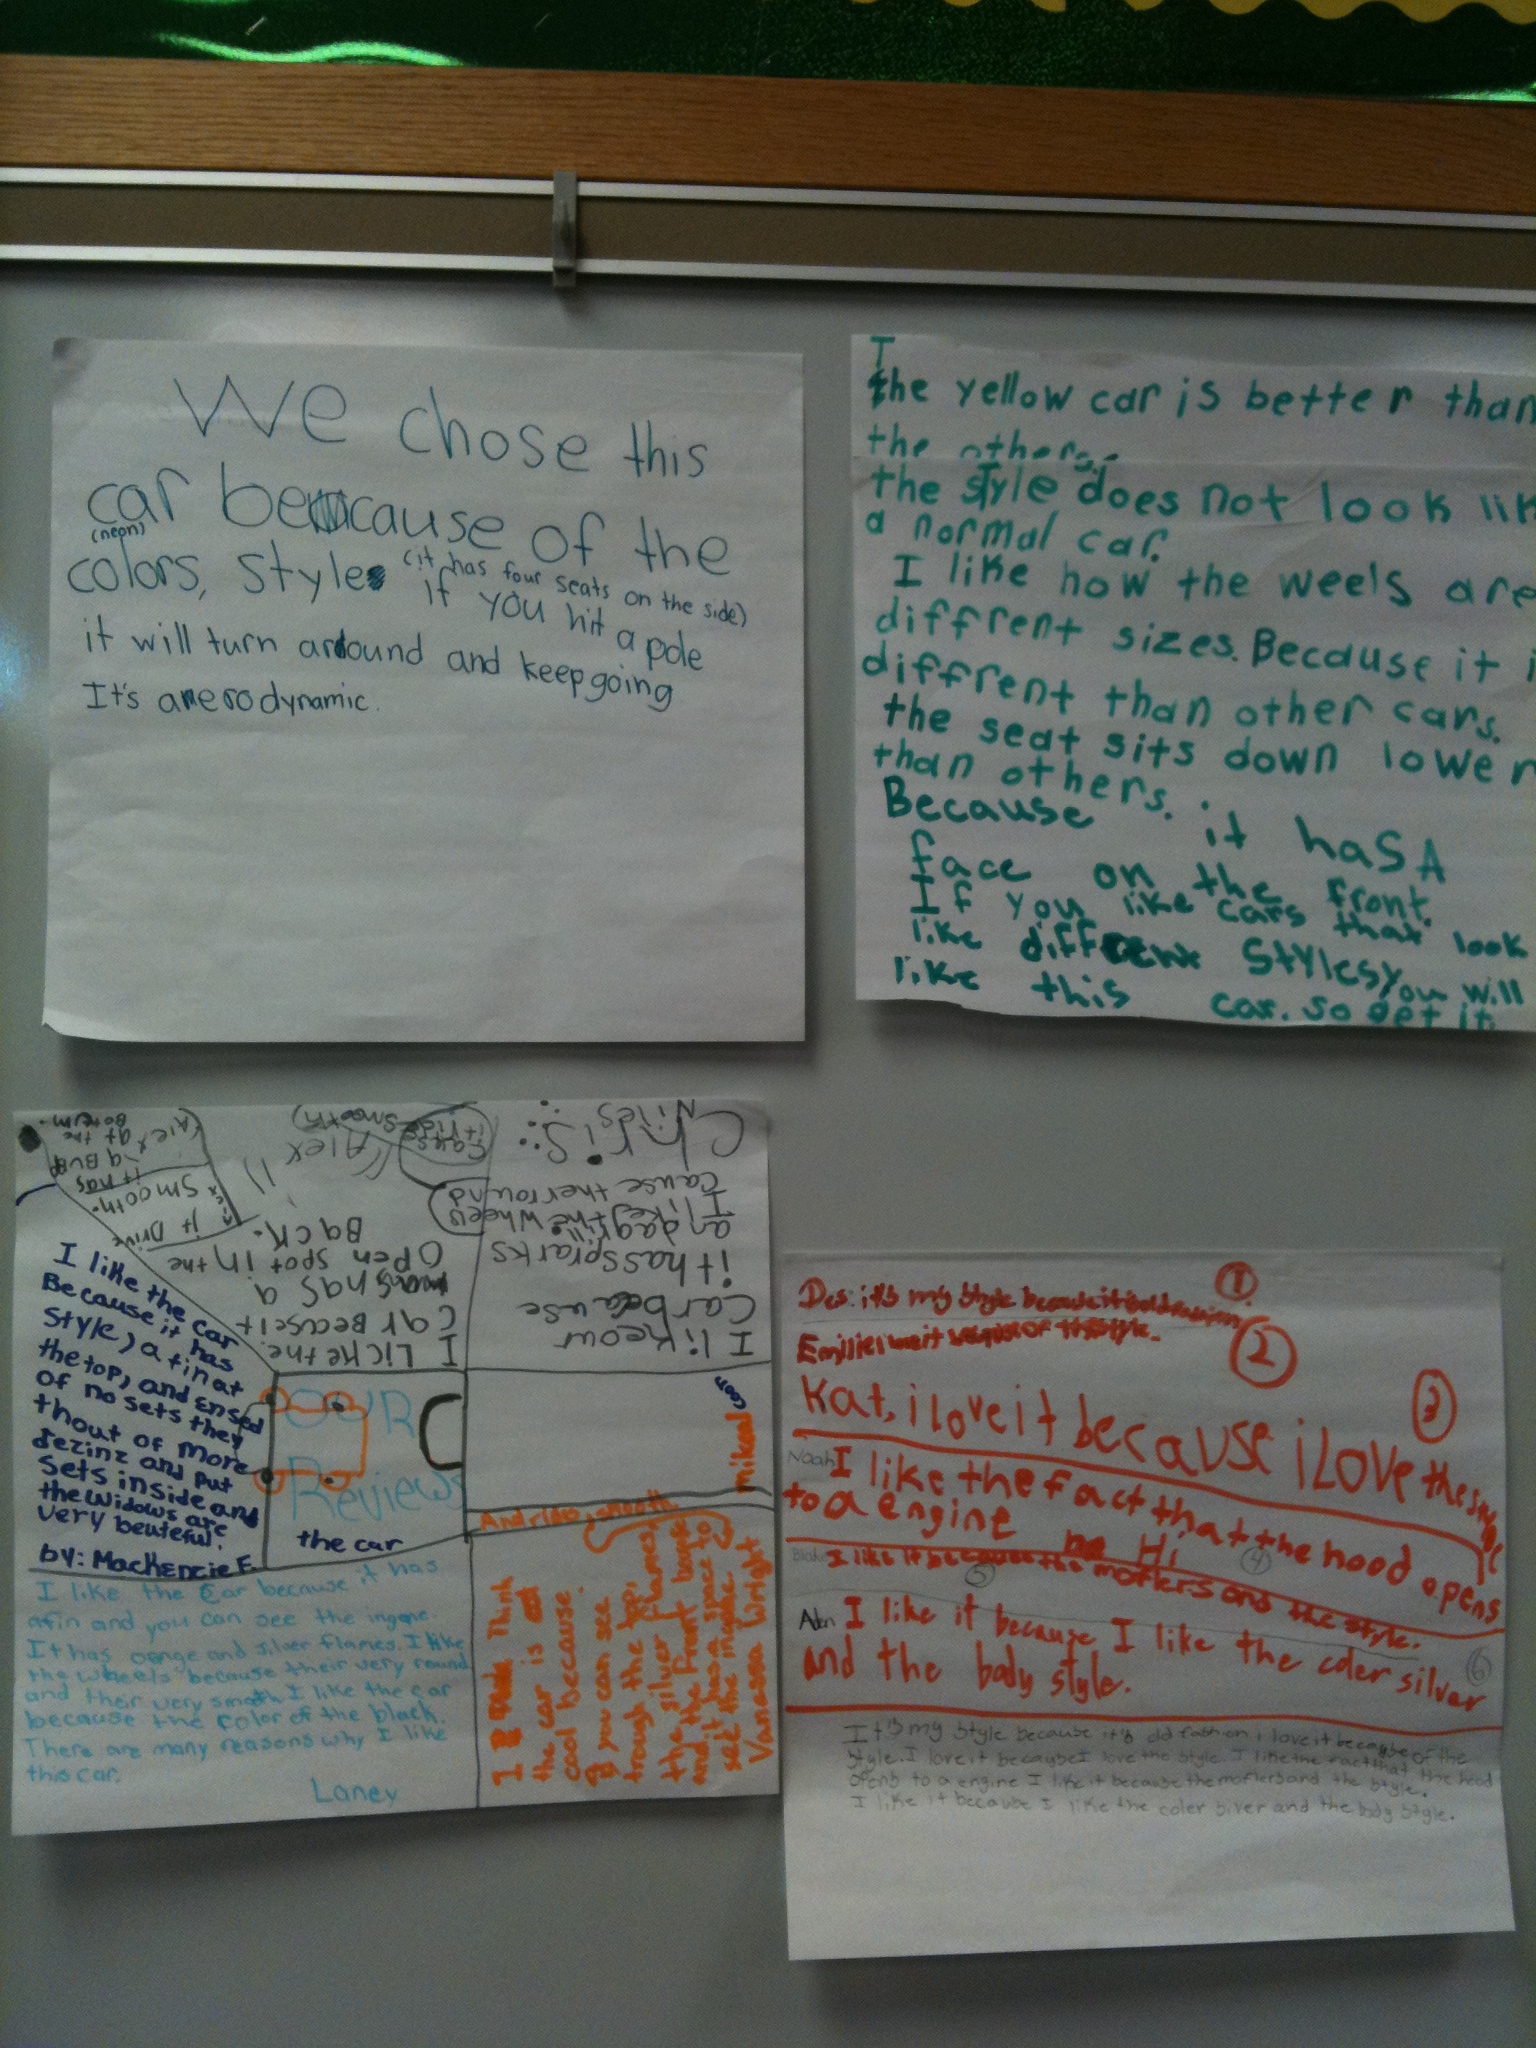 We chose this
car because of the
(neon)
colors, style (it has four seats on the side)
if you hit a pole
it will turn around and keep going
It's aerodynamic.
I
the yellow car is better than
the others.
the style does not look lik
a normal car.
I like how the weels are
diffrent sizes. Because it i
diffrent than other cars.
the seat sits down lower
than others.
Because it has A
face on the front.
If you like cars that look
like different styles you will
like this car. so get it.
I like the car
Because it has
Style, a fin at
the top, and ensed
of no sets they
thout of more
dezinz and put
sets inside and
the widows are
very beuteful.
by: Mackenzie F.
OUR
Reviews
the car
I Licke the
car Beause it
has a
open spot in the
Back.
Alex
it Drive
smooth.
it has
a BUBP
at the
Botum.
Alex
I like our
car because
it has sprarks
and a grill.
I like the wheels
cause ther round
Chris
Niles
mikeal
coon
And rides smooth.
I think
the car is
cool because
you can see
trough the top,
the silver flames,
and the front bank
it has a space to
see the inside.
Vanassa Wright
I like the car because it has
a fin and you can see the ingene.
It has oenge and silver flames. I like
the wheels because their very round
and their very smoth I like the car
because the color of the black.
There are many reasons why I like
this car.
Laney
Des: it's my style because it's old fashion 1
Emilie I love it because of the style. 2
Kat, i love it because i LOVE the style 3
Noah I like the fact that the hood opens
to a engine Hi 4
Blake I like it because the moflers and the style. 5
Aden I like it because I like the coler silver
and the body style. 6
It's my style because it's old fashion i love it because of the
style. I love it because I love the style. I like the fact that the hood
opens to a engine I like it because the moflers and the style.
I like it because I like the coler silver and the body style.